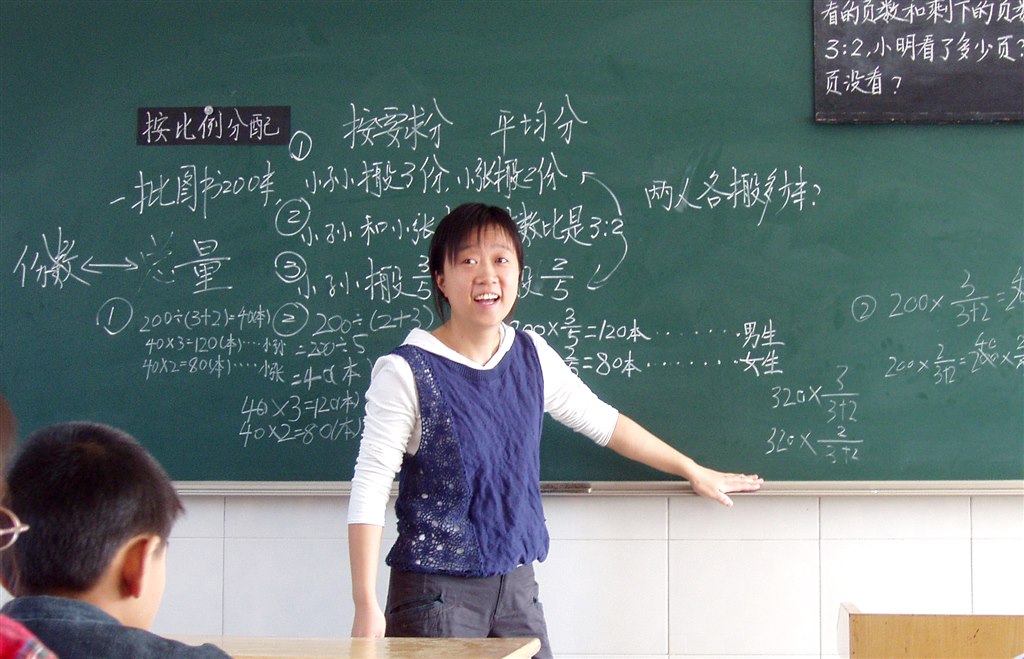 看的页数和剩下的页数
3:2.小明看了多少页?
页没看?
按比例分配
按要求分 平均分
一批图书200本,
① 小孙搬3份,小张搬2份
两人各搬多少本?
② 小孙和小张 数比是3:2
份数←→总量
③ 小孙搬3/5 搬2/5
① 200÷(3+2)=40(本)
40×3=120(本)····小孙
40×2=80(本)····小张
② 200÷(2+3)
=200÷5
=40本
40×3=120(本)
40×2=80(本)
200×3/5=120本········男生
=80本········女生
320×3/(3+2)
320×2/(3+2)
② 200×3/(3+2)=
200×2/(3+2)=